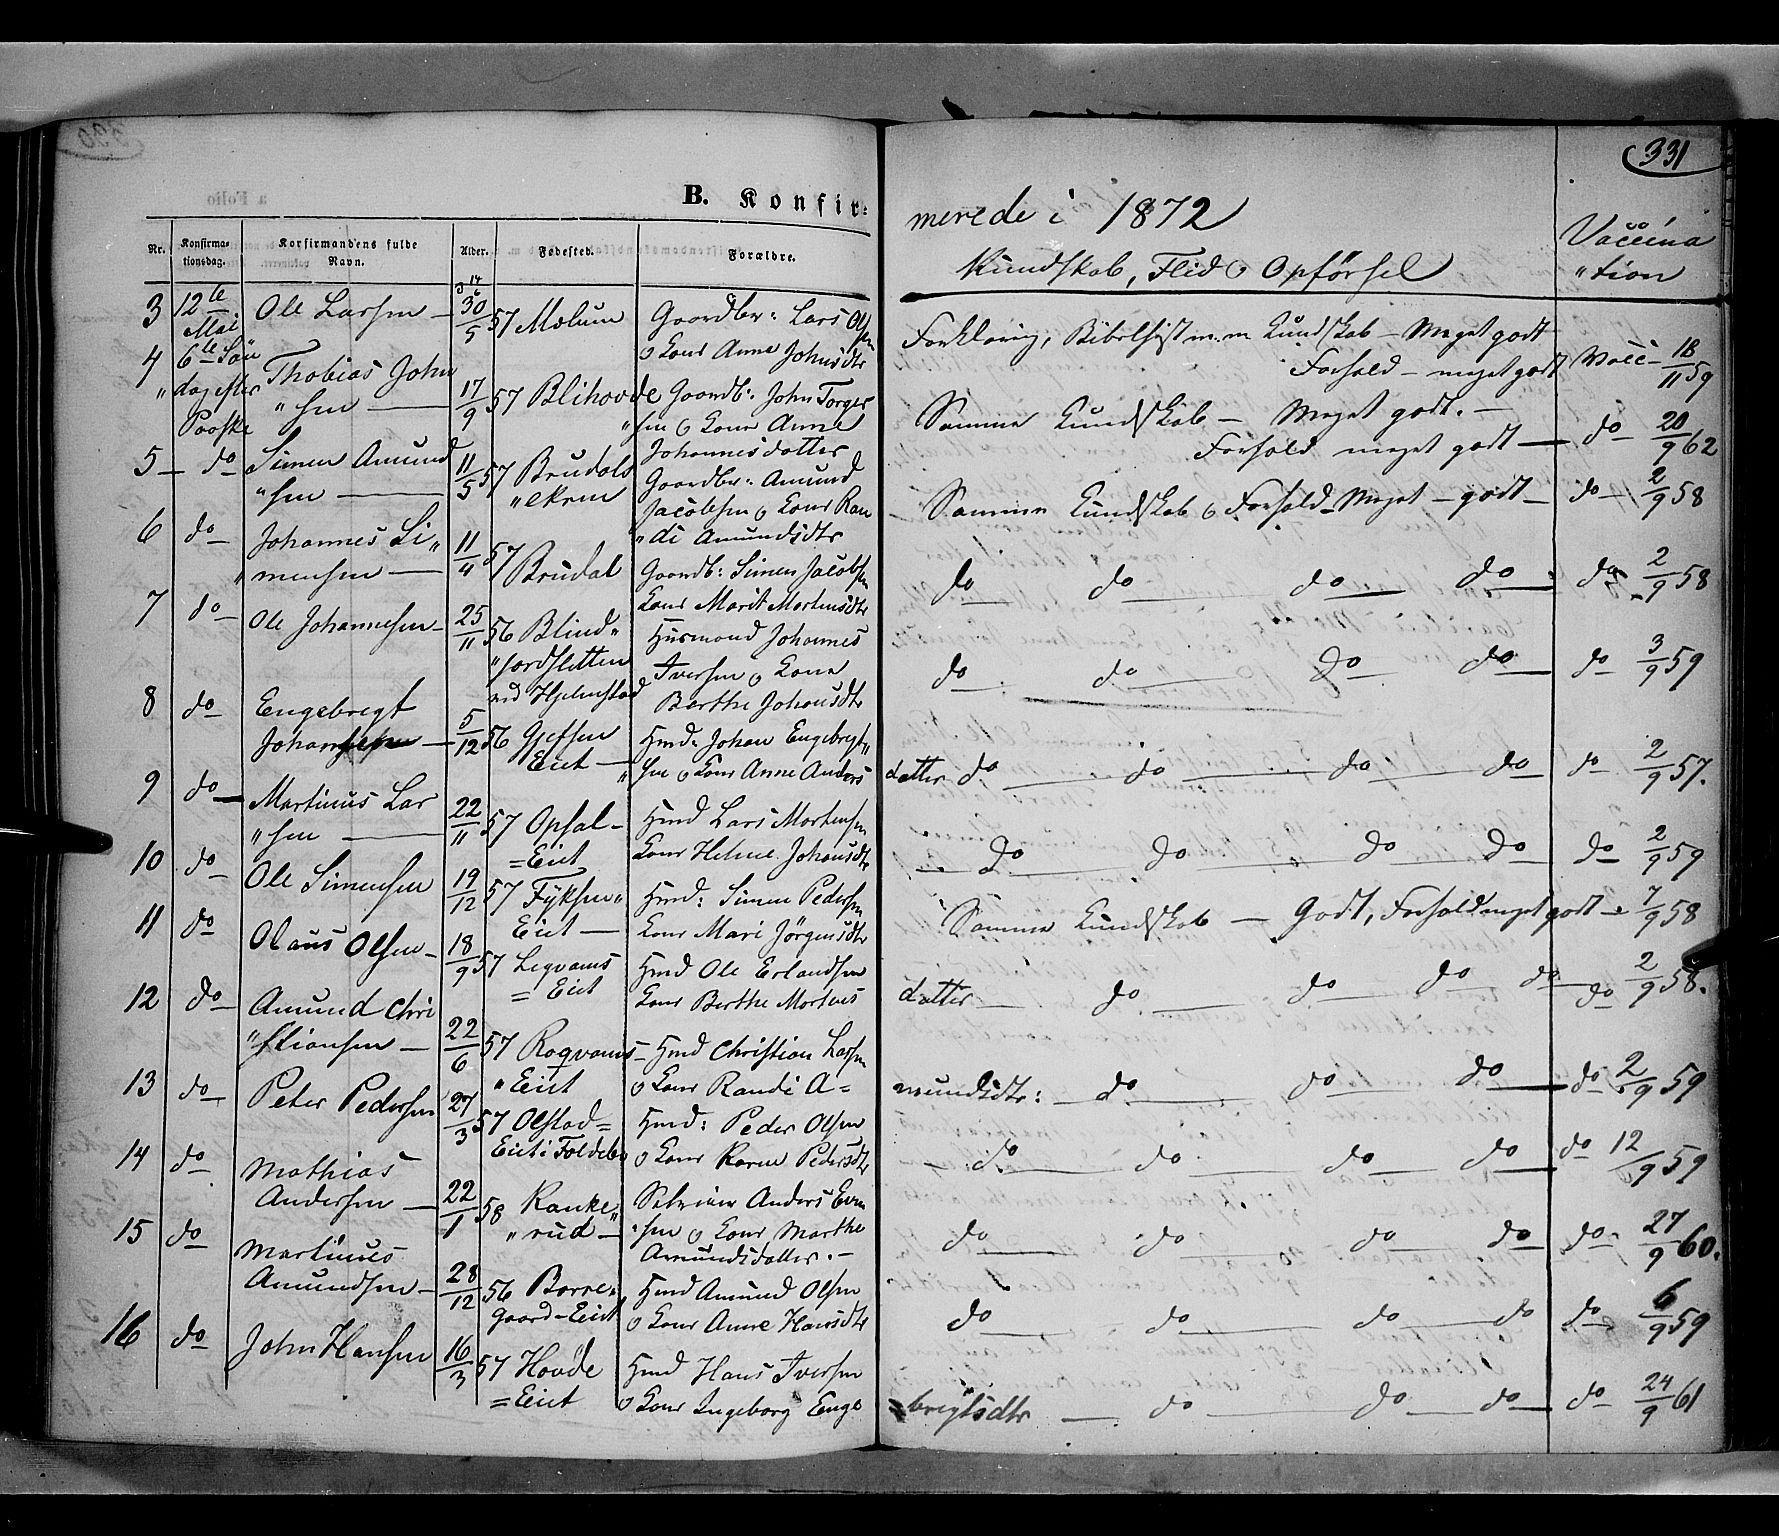 331
B. Konfir=
merede i 1872
Nr. Konfirma=tionsdag. Korfirmandens fulde Navn. Alder. Fødested. Forældre.
Kundskab, Flid o Opførsel
Vaccina
"tion
3 12te Mai Ole Larsen — 30/5 57 Mælum Gaardbr: Lars Olsen
o Kone Anne Johnsdtr
Forklaring, Bibelhist m.m Kundskab — Meget godt
Forhold — meget godt Vacc — 18/11 59
4 6te Søn
" dag efter
Paaske
Thobias John
" sen — 17/9 57 Blihovde Gaardb: John Torger
"sen o Kone Anne
Johannesdatter
Samme Kundskab — Meget godt. —
Forhold meget godt — do 20/9 62
5 — do Simen Amund
"sen — 11/5 57 Brudals
"ekren Gaardbr: Amund
Jacobsen o Kone Ran
"di Amundsdtr
Samme Kundskab o Forhold Meget — godt — do — 2/9 58
6 do Johannes Si"
"mensen — 11/4 57 Brudal Gaardb: Simen Jacobsen
Kone Marit Mortensdtr
do do do do do 2/9 58
7 do Ole Johannesen — 25/11 56 Blind"
"sordsletten
ved Hjelmstad Husmand Johannes
Iversen o Kone
Berthe Johansdtr
do do do do do 3/9 59
8 do Engebregt
Johansen — 5/12 56 Gjefsen
Eiet — Hmd: Johan Engebregt"
"sen o Kone Anne Anders
datter do do do do do 2/9 57.
9 do Martinus Lar
"sen — 22/11 57 Opsal —
=Eiet Hmd Lars Mortensen
Kone Helene Johansdtr
do do do do do 2/9 59
10 do Ole Simensen 19/12 57 Fyksen"
Eiet — Hmd: Simen Pedersen
Kone Mari Jörgensdtr
Samme Kundskab — Godt, Forhold meget godt — 7/9 58
11 do Olaus Olsen — 18/9 57 Leqvams
= Eiet Hmd Ole Erlandsen
Kone Berthe Mortens
datter — do do do do do 2/9 58.
12 do Amund Chri
"stiansen — 22/6 57 Roqvams —
" Eiet Hmd Christian Larsen
o Kone Randi A=
mundsdtr: — do do do do 2/9 59
13 do Peter Pedersen 27/3 57 Olstad=
Eiet i Foldebu Hmd: Peder Olsen
o Kone Karen Pedersdtr
do do do do do 12/9 59
14 do Mathias
Andersen — 22/1 58 Kanke"
"rud — Anders Even
"sen o Kone Marthe
Amundsdatter. —
do do do do do 27/9 60.
15 do Martinus
Amundsen — 28/12 56 Borre"
gaard — Eiet Hmd Amund Olsen
o Kone Anne Hansdtr
do do do do do 6/9 59
16 do John Hansen 16/3 57 Hovde
=Eiet Hmd Hans Iversen
o Kone Ingeborg Enge
=bregtsdtr — do do do do 24/9 61